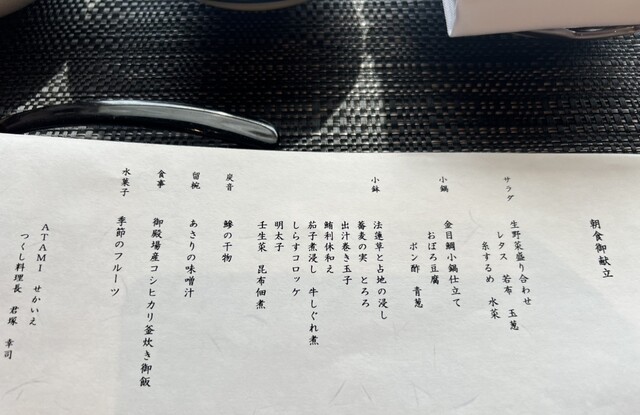 朝食御献立
サラダ
生野菜盛り合わせ
レタス 若布 玉葱
糸するめ 水菜
小鍋
金目鯛小鍋仕立て
おぼろ豆腐
ポン酢 青葱
小鉢
法蓮草と占地の浸し
蕎麦の実 とろろ
出汁巻き玉子
鮪利休和え
茄子煮浸し 牛しぐれ煮
しらすコロッケ
明太子
壬生菜 昆布佃煮
炭音
鯵の干物
留椀
あさりの味噌汁
食事
御殿場産コシヒカリ釜炊き御飯
水菓子
季節のフルーツ
ATAMI せかいえ
つくし料理長 君塚 幸司